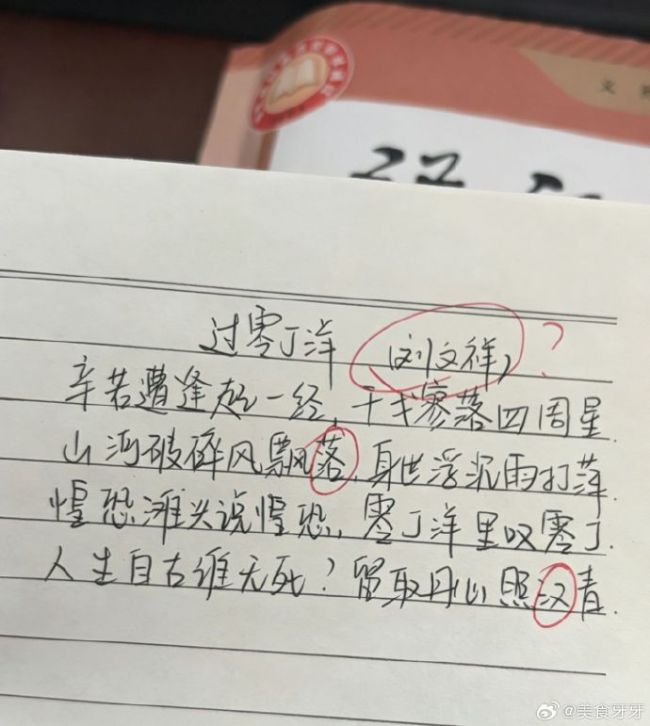 文
过零丁洋 (刘文祥) ?
辛若遭逢起一经,干戈寥落四周星.
山河破碎风飘落,身世浮沉雨打萍.
惶恐滩头说惶恐,零丁洋里叹零丁.
人生自古谁无死?留取丹心照汉青.
@美食牙牙